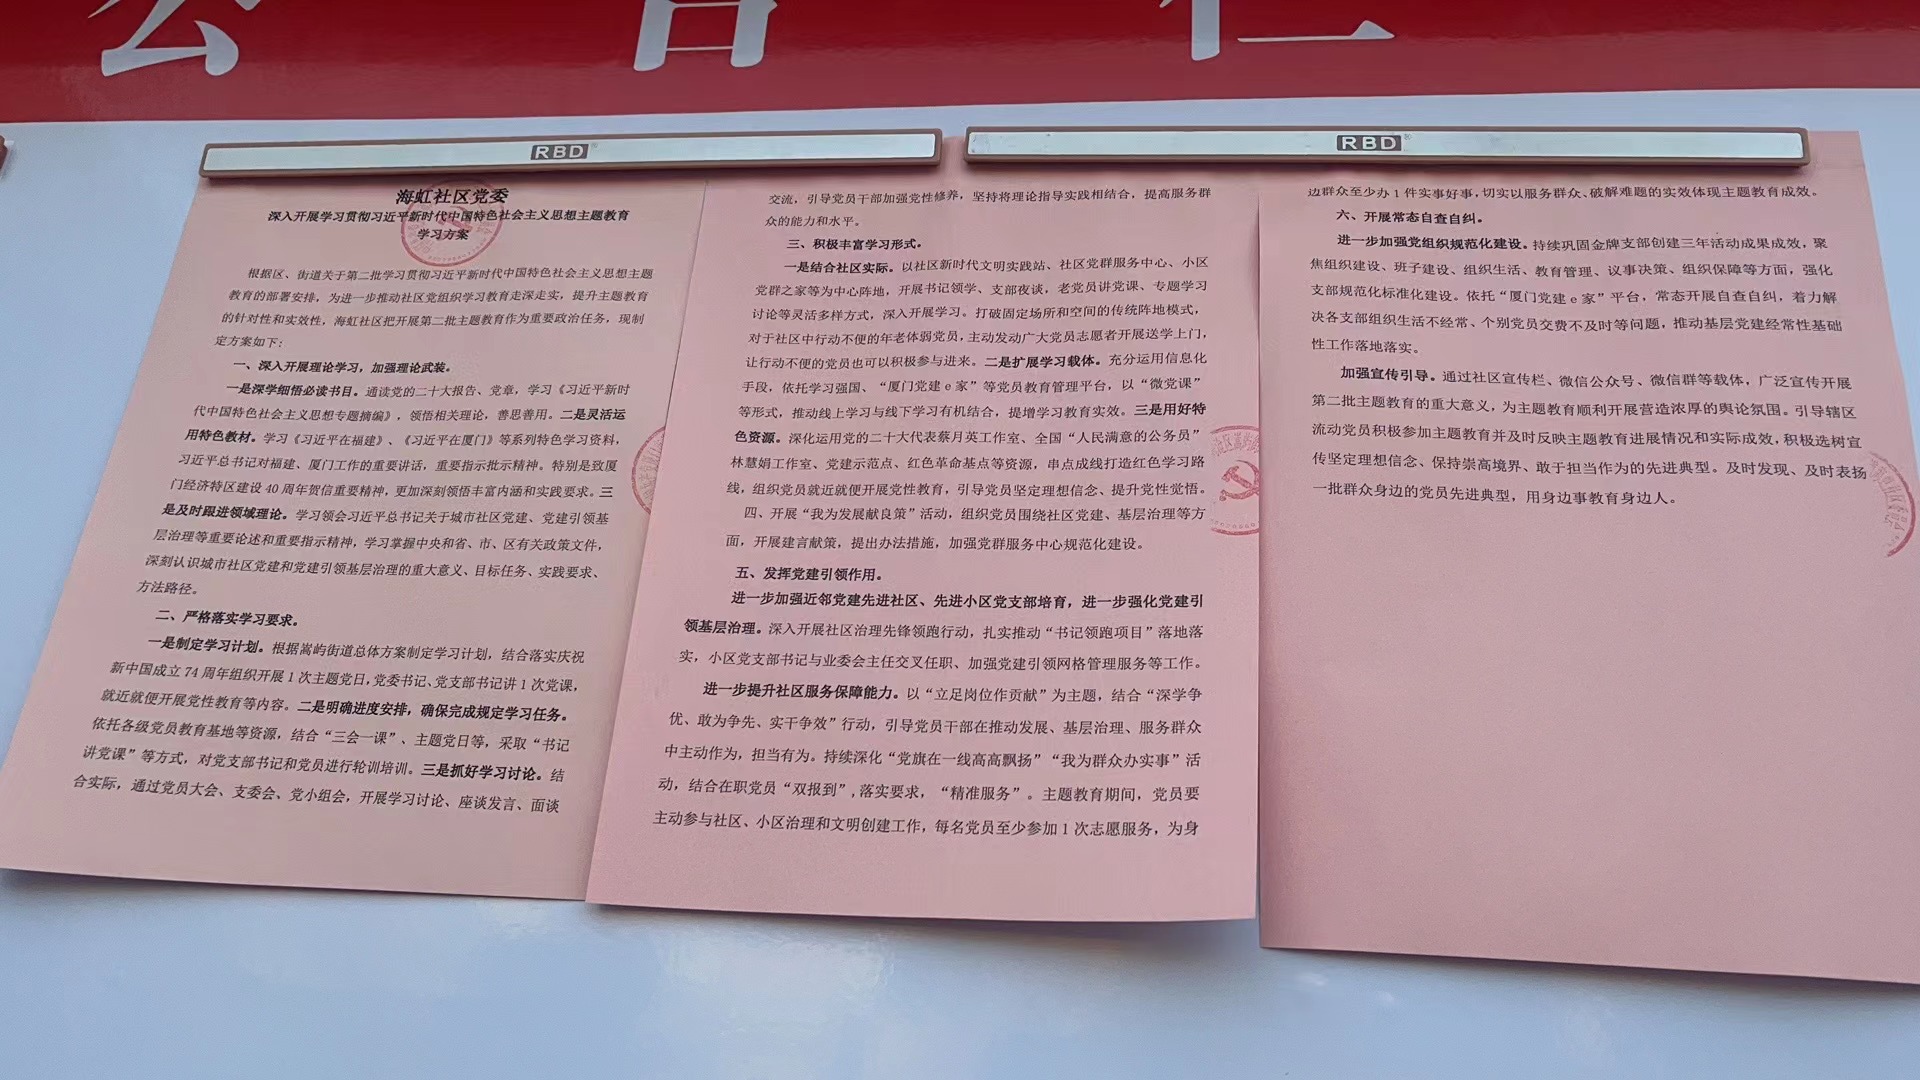 公告栏
RBD
RBD
海虹社区党委
深入开展学习贯彻习近平新时代中国特色社会主义思想主题教育
学习方案
根据区、街道关于第二批学习贯彻习近平新时代中国特色社会主义思想主题
教育的部署安排，为进一步推动社区党组织学习教育走深走实，提升主题教育
的针对性和实效性，海虹社区把开展第二批主题教育作为重要政治任务，现制
定方案如下：
一、深入开展理论学习，加强理论武装。
一是深学细悟必读书目。通读党的二十大报告、党章，学习《习近平新时
代中国特色社会主义思想专题摘编》，领悟相关理论，善思善用。二是灵活运
用特色教材。学习《习近平在福建》、《习近平在厦门》等系列特色学习资料，
习近平总书记对福建、厦门工作的重要讲话，重要指示批示精神。特别是致厦
门经济特区建设 40 周年贺信重要精神，更加深刻领悟丰富内涵和实践要求。三
是及时跟进领域理论。学习领会习近平总书记关于城市社区党建、党建引领基
层治理等重要论述和重要指示精神，学习掌握中央和省、市、区有关政策文件，
深刻认识城市社区党建和党建引领基层治理的重大意义、目标任务、实践要求、
方法路径。
二、严格落实学习要求。
一是制定学习计划。根据嵩屿街道总体方案制定学习计划，结合落实庆祝
新中国成立 74 周年组织开展 1 次主题党日，党委书记、党支部书记讲 1 次党课，
就近就便开展党性教育等内容。二是明确进度安排，确保完成规定学习任务。
依托各级党员教育基地等资源，结合“三会一课”、主题党日等，采取“书记
讲党课”等方式，对党支部书记和党员进行轮训培训。三是抓好学习讨论。结
合实际，通过党员大会、支委会、党小组会，开展学习讨论、座谈发言、面谈
交流，引导党员干部加强党性修养，坚持将理论指导实践相结合，提高服务群
众的能力和水平。
三、积极丰富学习形式。
一是结合社区实际。以社区新时代文明实践站、社区党群服务中心、小区
党群之家等为中心阵地，开展书记领学、支部夜谈，老党员讲党课、专题学习
讨论等灵活多样方式，深入开展学习。打破固定场所和空间的传统阵地模式，
对于社区中行动不便的年老体弱党员，主动发动广大党员志愿者开展送学上门，
让行动不便的党员也可以积极参与进来。二是扩展学习载体。充分运用信息化
手段，依托学习强国、“厦门党建 e 家”等党员教育管理平台，以“微党课”
等形式，推动线上学习与线下学习有机结合，提增学习教育实效。三是用好特
色资源。深化运用党的二十大代表蔡月英工作室、全国“人民满意的公务员”
林慧娟工作室、党建示范点、红色革命基点等资源，串点成线打造红色学习路
线，组织党员就近就便开展党性教育，引导党员坚定理想信念、提升党性觉悟。
四、开展“我为发展献良策”活动，组织党员围绕社区党建、基层治理等方
面，开展建言献策，提出办法措施，加强党群服务中心规范化建设。
五、发挥党建引领作用。
进一步加强近邻党建先进社区、先进小区党支部培育，进一步强化党建引
领基层治理。深入开展社区治理先锋领跑行动，扎实推动“书记领跑项目”落地落
实，小区党支部书记与业委会主任交叉任职、加强党建引领网格管理服务等工作。
进一步提升社区服务保障能力。以“立足岗位作贡献”为主题，结合“深学争
优、敢为争先、实干争效”行动，引导党员干部在推动发展、基层治理、服务群众
中主动作为，担当有为。持续深化“党旗在一线高高飘扬”“我为群众办实事”活
动，结合在职党员“双报到”，落实要求，“精准服务”。主题教育期间，党员要
主动参与社区、小区治理和文明创建工作，每名党员至少参加 1 次志愿服务，为身
边群众至少办 1 件实事好事，切实以服务群众、破解难题的实效体现主题教育成效。
六、开展常态自查自纠。
进一步加强党组织规范化建设。持续巩固金牌支部创建三年活动成果成效，聚
焦组织建设、班子建设、组织生活、教育管理、议事决策、组织保障等方面，强化
支部规范化标准化建设。依托“厦门党建 e 家”平台，常态开展自查自纠，着力解
决各支部组织生活不经常、个别党员交费不及时等问题，推动基层党建经常性基础
性工作落地落实。
加强宣传引导。通过社区宣传栏、微信公众号、微信群等载体，广泛宣传开展
第二批主题教育的重大意义，为主题教育顺利开展营造浓厚的舆论氛围。引导辖区
流动党员积极参加主题教育并及时反映主题教育进展情况和实际成效，积极选树宣
传坚定理想信念、保持崇高境界、敢于担当作为的先进典型。及时发现、及时表扬
一批群众身边的党员先进典型，用身边事教育身边人。